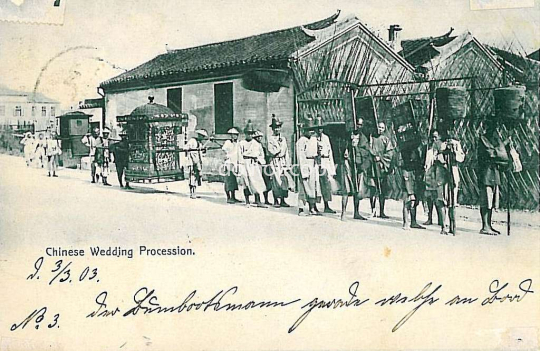 Chinese Wedding Procession.
d. 3/3. 03.
No 3. der Bumbootsmann gerade welche an Bord